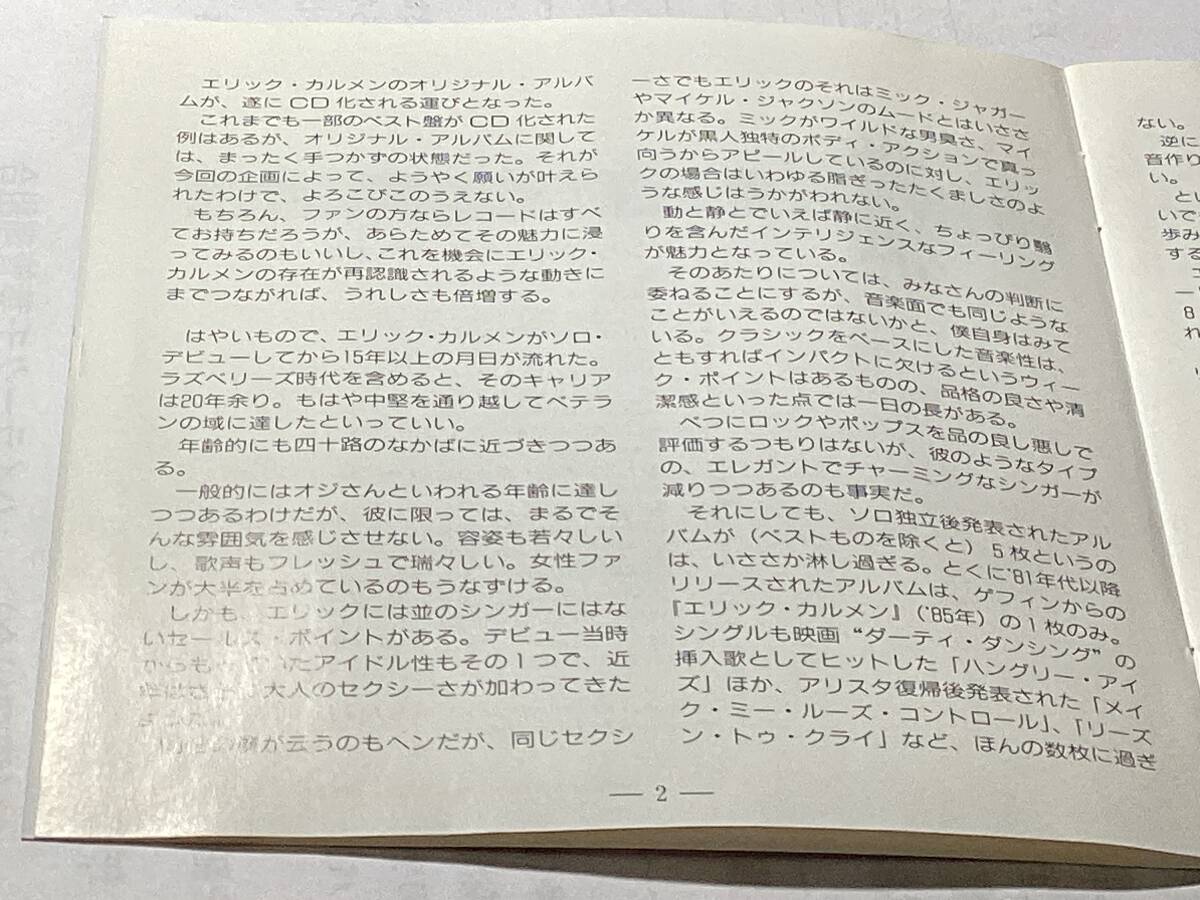 エリック・カルメンのオリジナル・アルバ
ムが、遂に CD 化される運びとなった。
これまでも一部のベスト盤が CD 化された
例はあるが、オリジナル・アルバムに関して
は、まったく手つかずの状態だった。それが
今回の企画によって、ようやく願いが叶えら
れたわけで、よろこびこのうえない。
もちろん、ファンの方ならレコードはすべ
てお持ちだろうが、あらためてその魅力に浸
ってみるのもいいし、これを機会にエリック・
カルメンの存在が再認識されるような動きに
までつながれば、うれしさも倍増する。
はやいもので、エリック・カルメンがソロ・
デビューしてから15年以上の月日が流れた。
ラズベリーズ時代を含めると、そのキャリア
は20年余り。もはや中堅を通り越してベテラ
ンの域に達したといっていい。
年齢的にも四十路のなかばに近づきつつあ
る。
一般的にはオジさんといわれる年齢に達し
つつあるわけだが、彼に限っては、まるでそ
んな雰囲気を感じさせない。容姿も若々しい
し、歌声もフレッシュで瑞々しい。女性ファ
ンが大半を占めているのもうなずける。
しかも、エリックには並のシンガーにはな
いセールス・ポイントがある。デビュー当時
からも たアイドル性もその1つで、近
大人のセクシーさが加わってきた
が云うのもヘンだが、同じセクシ
ーさでもエリックのそれはミック・ジャガー
やマイケル・ジャクソンのムードとはいささ
か異なる。ミックがワイルドな男臭さ、マイ
ケルが黒人独特のボディ・アクションで真っ
向うからアピールしているのに対し、エリッ
クの場合はいわゆる脂ぎったたくましさのよ
うな感じはうかがわれない。
動と静とでいえば静に近く、ちょっぴり翳
りを含んだインテリジェンスなフィーリング
が魅力となっている。
そのあたりについては、みなさんの判断に
委ねることにするが、音楽面でも同じような
ことがいえるのではないかと、僕自身はみて
いる。クラシックをベースにした音楽性は、
ともすればインパクトに欠けるというウィー
ク・ポイントはあるものの、品格の良さや清
潔感といった点では一日の長がある。
べつにロックやポップスを品の良し悪しで
評価するつもりはないが、彼のようなタイプ
の、エレガントでチャーミングなシンガーが
減りつつあるのも事実だ。
それにしても、ソロ独立後発表されたアル
バムが（ベストものを除くと）5枚というの
は、いささか淋し過ぎる。とくに'81年代以降
リリースされたアルバムは、ゲフィンからの
『エリック・カルメン』('85年) の1枚のみ。
シングルも映画“ダーティ・ダンシング”の
挿入歌としてヒットした「ハングリー・アイ
ズ」ほか、アリスタ復帰後発表された「メイ
ク・ミー・ルーズ・コントロール」、「リーズ
ン・トゥ・クライ」など、ほんの数枚に過ぎ
— 2 —
ない。
逆に
音作り
い。
と
いで
歩み
する
ー
8
れ